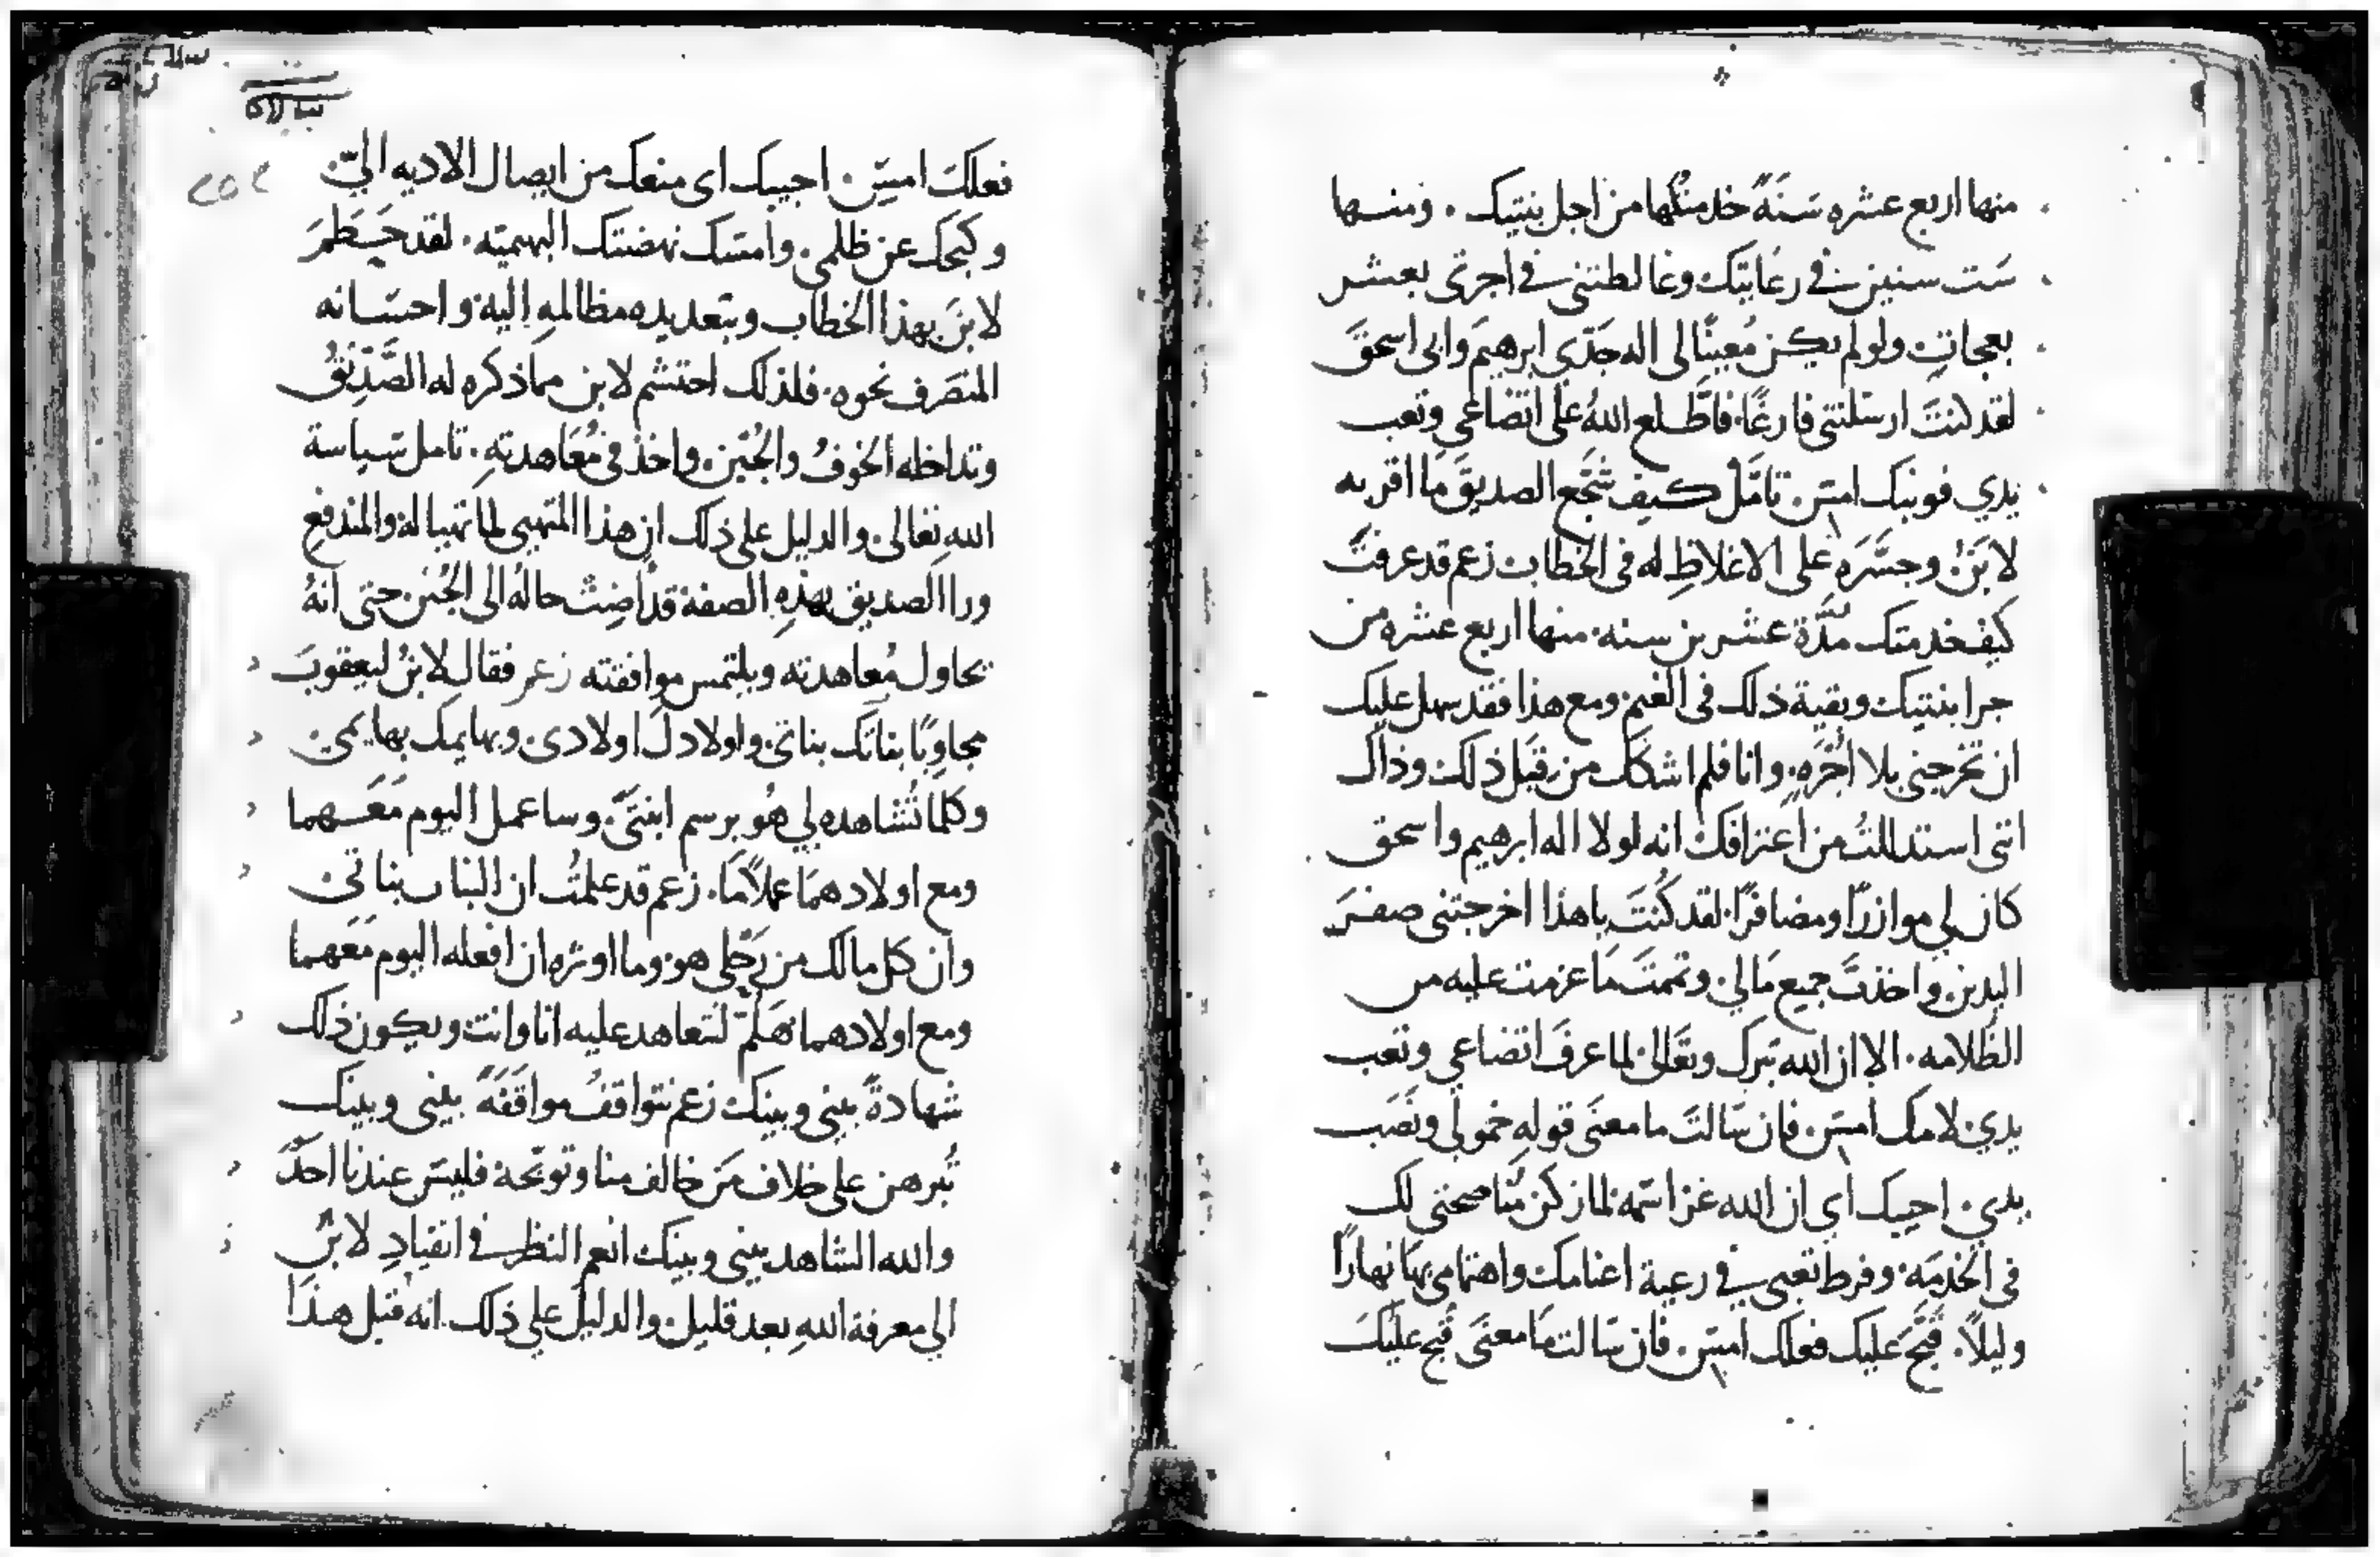 منها اربع عشره سَنَةً خدمتُكها من اجل بنتيك . ومنها
سَت سنين في رعَايتِك وغالطتني في اجرتى بعشر
بعجاتٍ ولو لم يكن مُعينًا لى اله جَدّي ابرهيم وابى اسحقَ
لقد كنتَ ارسَلتني فارغًا. فاطَّلع اللهُ على اتضاعي وتعب
يدي فوبّبَك امسِ. تامَّلْ كيف شجَّع الصديقَ ما اقر به
لابَنُ وجسَّرَه على الاغلاظِ له فى الخطاب زعم قد عرفتَ
كيف خدمتك مُدَّة عشرين سنه. منها اربع عشره من
جرا بنتيك وبقية ذلك فى الغنم. ومع هذا فقد سهل عليك
ان تخرجني بلا اُجْرَهٍ. وانا فلم اشكك من قبَل ذلك وذاك
انني استدللتُ من اعترافك انه لولا اله ابرهيم واسحق
كان لي موازرًا ومضافرًا. لقد كُنتَ ياهذا اخرجتني صفرَ
اليدين. واخذتَ جميع مَالي. وتممتَ مَا عزمت عليه من
الظلامه. الا ان الله تبرك وتعَالى لما عرفَ اتضاعي وتعب
يدي. لامك امسِ. فان سَالتَ ما معنَى قولهِ خمولي ونصَب
يدي. اجيبك اي ان الله عز اسمه لما زكن مُناصحتي لك
فى الخدمَه. وفرط تعبى في رعية اغنامك واهتمامى بهَا نهارًا
وليلاً. قبَّحَ عليك فعلك امسِ. فان سَالت مَا معنَى قبَّح عليكَ
فعلكَ امسِ. اجيبك اى منعك من ايصال الاديه اليّ.
وكبحك عن ظلمي. وامسَك نهضتك البهميّه. لقد
لابنَ بهذا الخطاب وبتعديده مظالمهِ اليه واحسَانه
المنصَرف نحوه. فلذلك احتشم لابن مما ذكره له الصِّدّيقُ
وتداخله الخوفُ والجُبْن. واخذ في مُعَاهدتهِ. تامل سيَاسة
اللهِ تعالى والدليل على ذلك ان هذا المتهيى لما تهيا له والمندفع
ورا الصديق بهذهِ الصفة قد اضِتْ حالهُ الى الجُبْن. حتى انهُ
يحاول مُعاهدته ويلتمس موافقته زعم فقال لابنُ ليعقوبَ
مجاوِبًا بناتك بناتي. واولادك اولادى. وبهايمك بهايمى.
وكلما تُشاهده لي هُو برسم ابنتَيَّ. وساعمل اليوم مَعَهما
ومع اولادهمَا عملاً مَا. زعم قد علمتُ ان البنات بناتى.
وان كل مالك من رَحْلي هو. وما اوثره ان افعله اليوم مَعَهما
ومع اولادهما. هَلمَّ لنتعاهد عليه انا وانت ويكون ذلك
شهادةً بيني وبينك زعم نتواقفُ مواقَفَهً بيني وبينك
تُبرهن على خلاف مَن خالف منا وتوبّخه. فليسَ عندنا احدٌ
والله الشاهد بيني وبينك انعم النظر في انقيادِ لابنُ
الي معرفة اللهِ بعد قليل. والدليل على ذلك. انه قبل هذَا